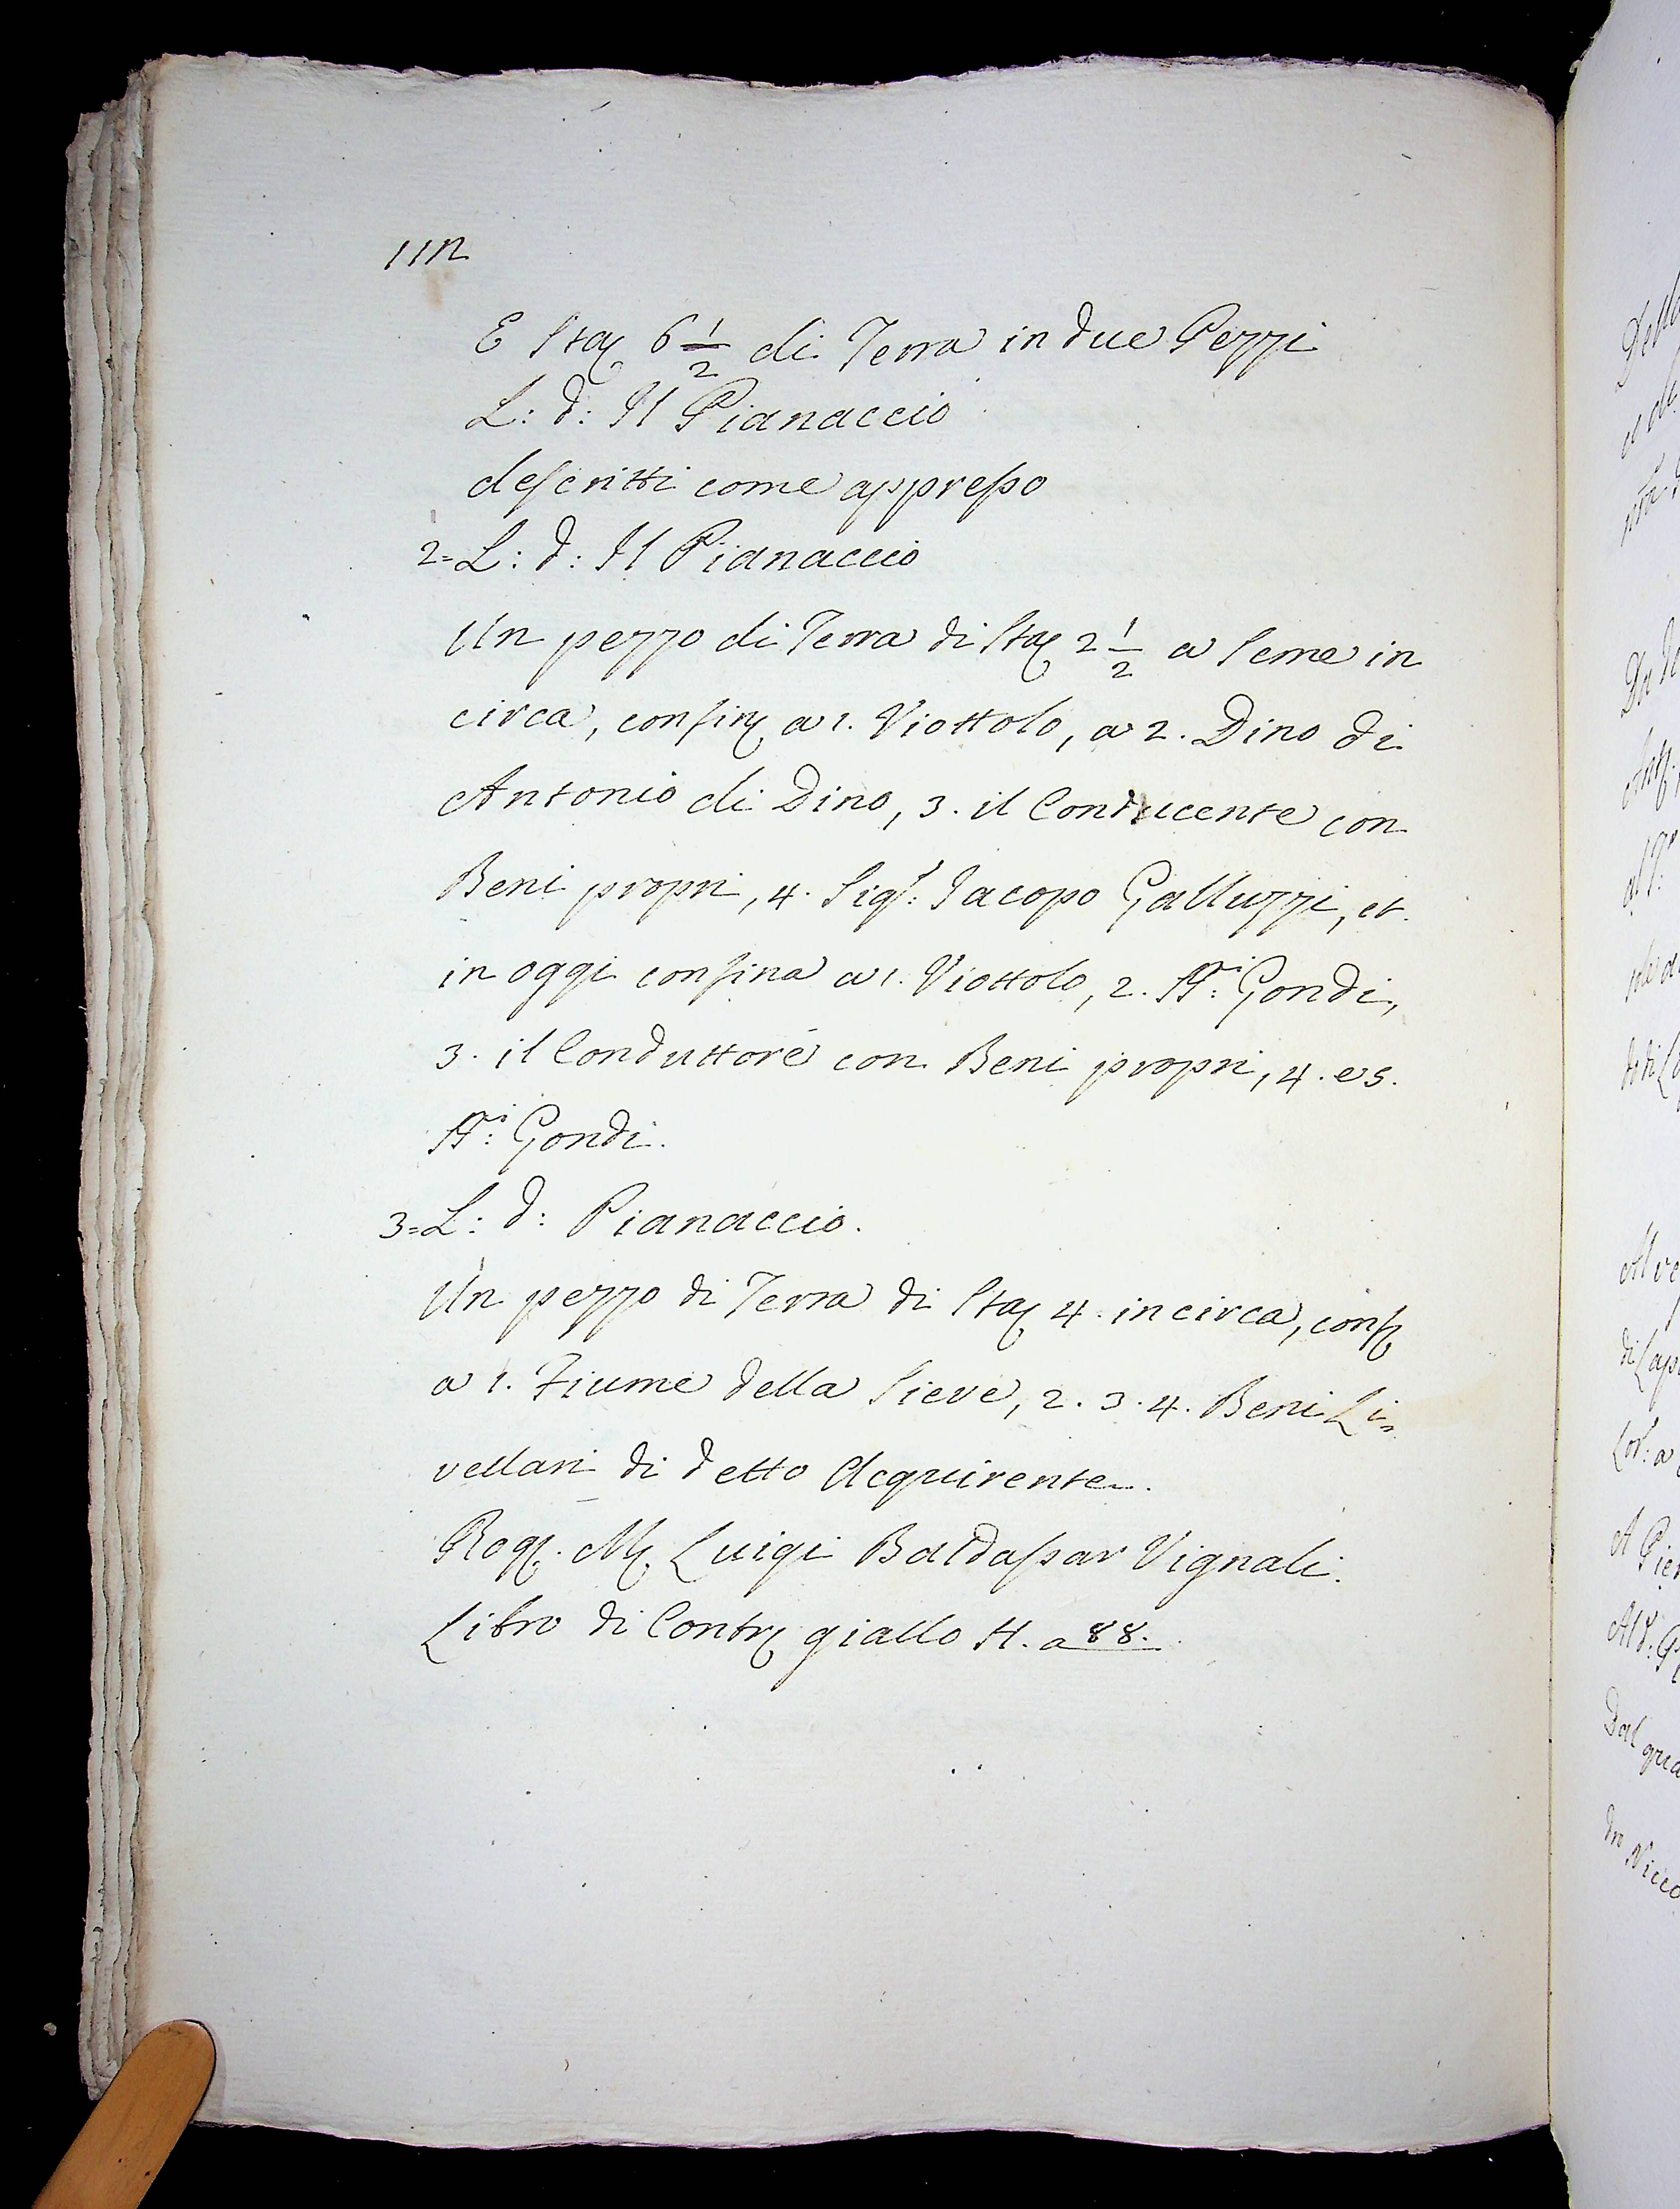 112
E Sta 6 1/2 di Terra in due Pezzi
L: d: Il Pianaccio
descritti come appresso
2= L: d: Il Pianaccio
Un pezzo di Terra di Sta 2 1/2 a Seme in
circa, confin a 1. Viottolo, a 2. Dino di
Antonio di Dino, 3. il Conducente con
Beni propri, 4. Sigr: Jacopo Galluzzi, et
in oggi confina a 1. Viottolo, 2. SSri: Gondi,
3. il Conduttore con Beni propri, 4. e 5.
SSri: Gondi.
3= L: d: Pianaccio.
Un pezzo di Terra di Sta 4. in circa, conf
a 1. Fiume della Sieve, 2. 3. 4. Beni Li=
vellari di detto Acquirente.
Rog. M Luigi Baldassar Vignali.
Libro di Contr giallo H. a 88.